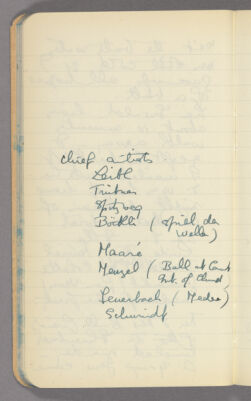 chief artists
Leibl
Trübner
Spitzweg
Böcklin (Spiel der
Wellen)
Maaré
Menzel (Ball at Court
Int. of Church
Feuerbach (Medea)
Schwindt